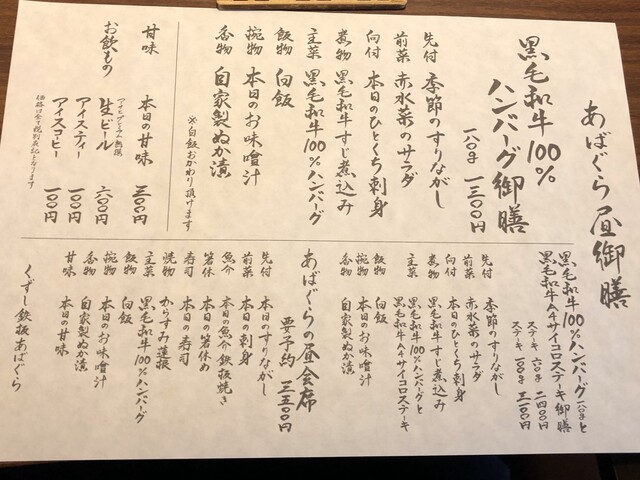 あばぐら昼御膳
黒毛和牛100%
ハンバーグ御膳
一八〇g 一三〇〇円
先付 季節のすりながし
前菜 赤水菜のサラダ
向付 本日のひとくち刺身
煮物 黒毛和牛すじ煮込み
主菜 黒毛和牛100%ハンバーグ
飯物 白飯
椀物 本日のお味噌汁
香物 自家製ぬか漬
※白飯おかわり頂けます
甘味 本日の甘味 三〇〇円
お飲もの
アサヒプレミアム熟撰
生ビール 六〇〇円
アイスティー 一〇〇円
アイスコーヒー 一〇〇円
価格は全て税別表記となります
黒毛和牛100%ハンバーグ一八〇gと
黒毛和牛A4サイコロステーキ御膳
ステーキ 六〇g 二四〇〇円
ステーキ 一〇〇g 三一〇〇円
先付 季節のすりながし
前菜 赤水菜のサラダ
向付 本日のひとくち刺身
煮物 黒毛和牛すじ煮込み
主菜 黒毛和牛100%ハンバーグと
黒毛和牛A4サイコロステーキ
飯物 白飯
椀物 本日のお味噌汁
香物 自家製ぬか漬
あばぐらの昼会席
要予約 三五〇〇円
先付 本日のすりながし
前菜 本日の刺身
魚介 本日の魚介鉄板焼き
箸休 本日の箸休め
寿司 本日の寿司
焼物 からすみ蓮根
主菜 黒毛和牛100%ハンバーグ
飯物 白飯
椀物 本日のお味噌汁
香物 自家製ぬか漬
甘味 本日の甘味
くずし鉄板あばぐら